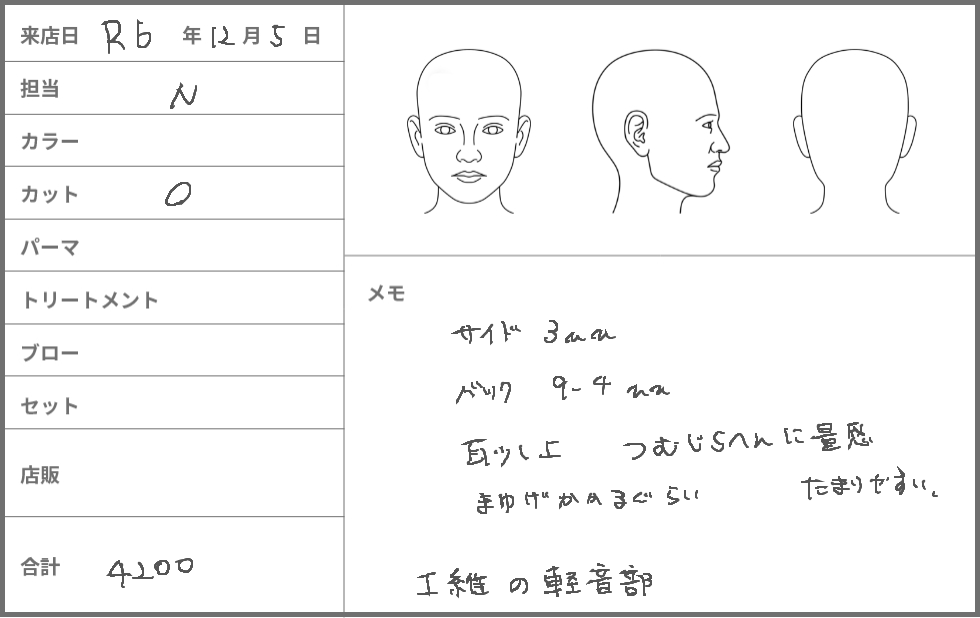 来店日 R6 年 12 月 5 日
担当 N
カラー
カット ○
パーマ
トリートメント
ブロー
セット
店販
合計 4200
メモ
サイド 3mm
バック 9-4 mm
耳少し上 つむじらへんに量感
まゆげかめまぐらい たまりやすい。
工維の軽音部